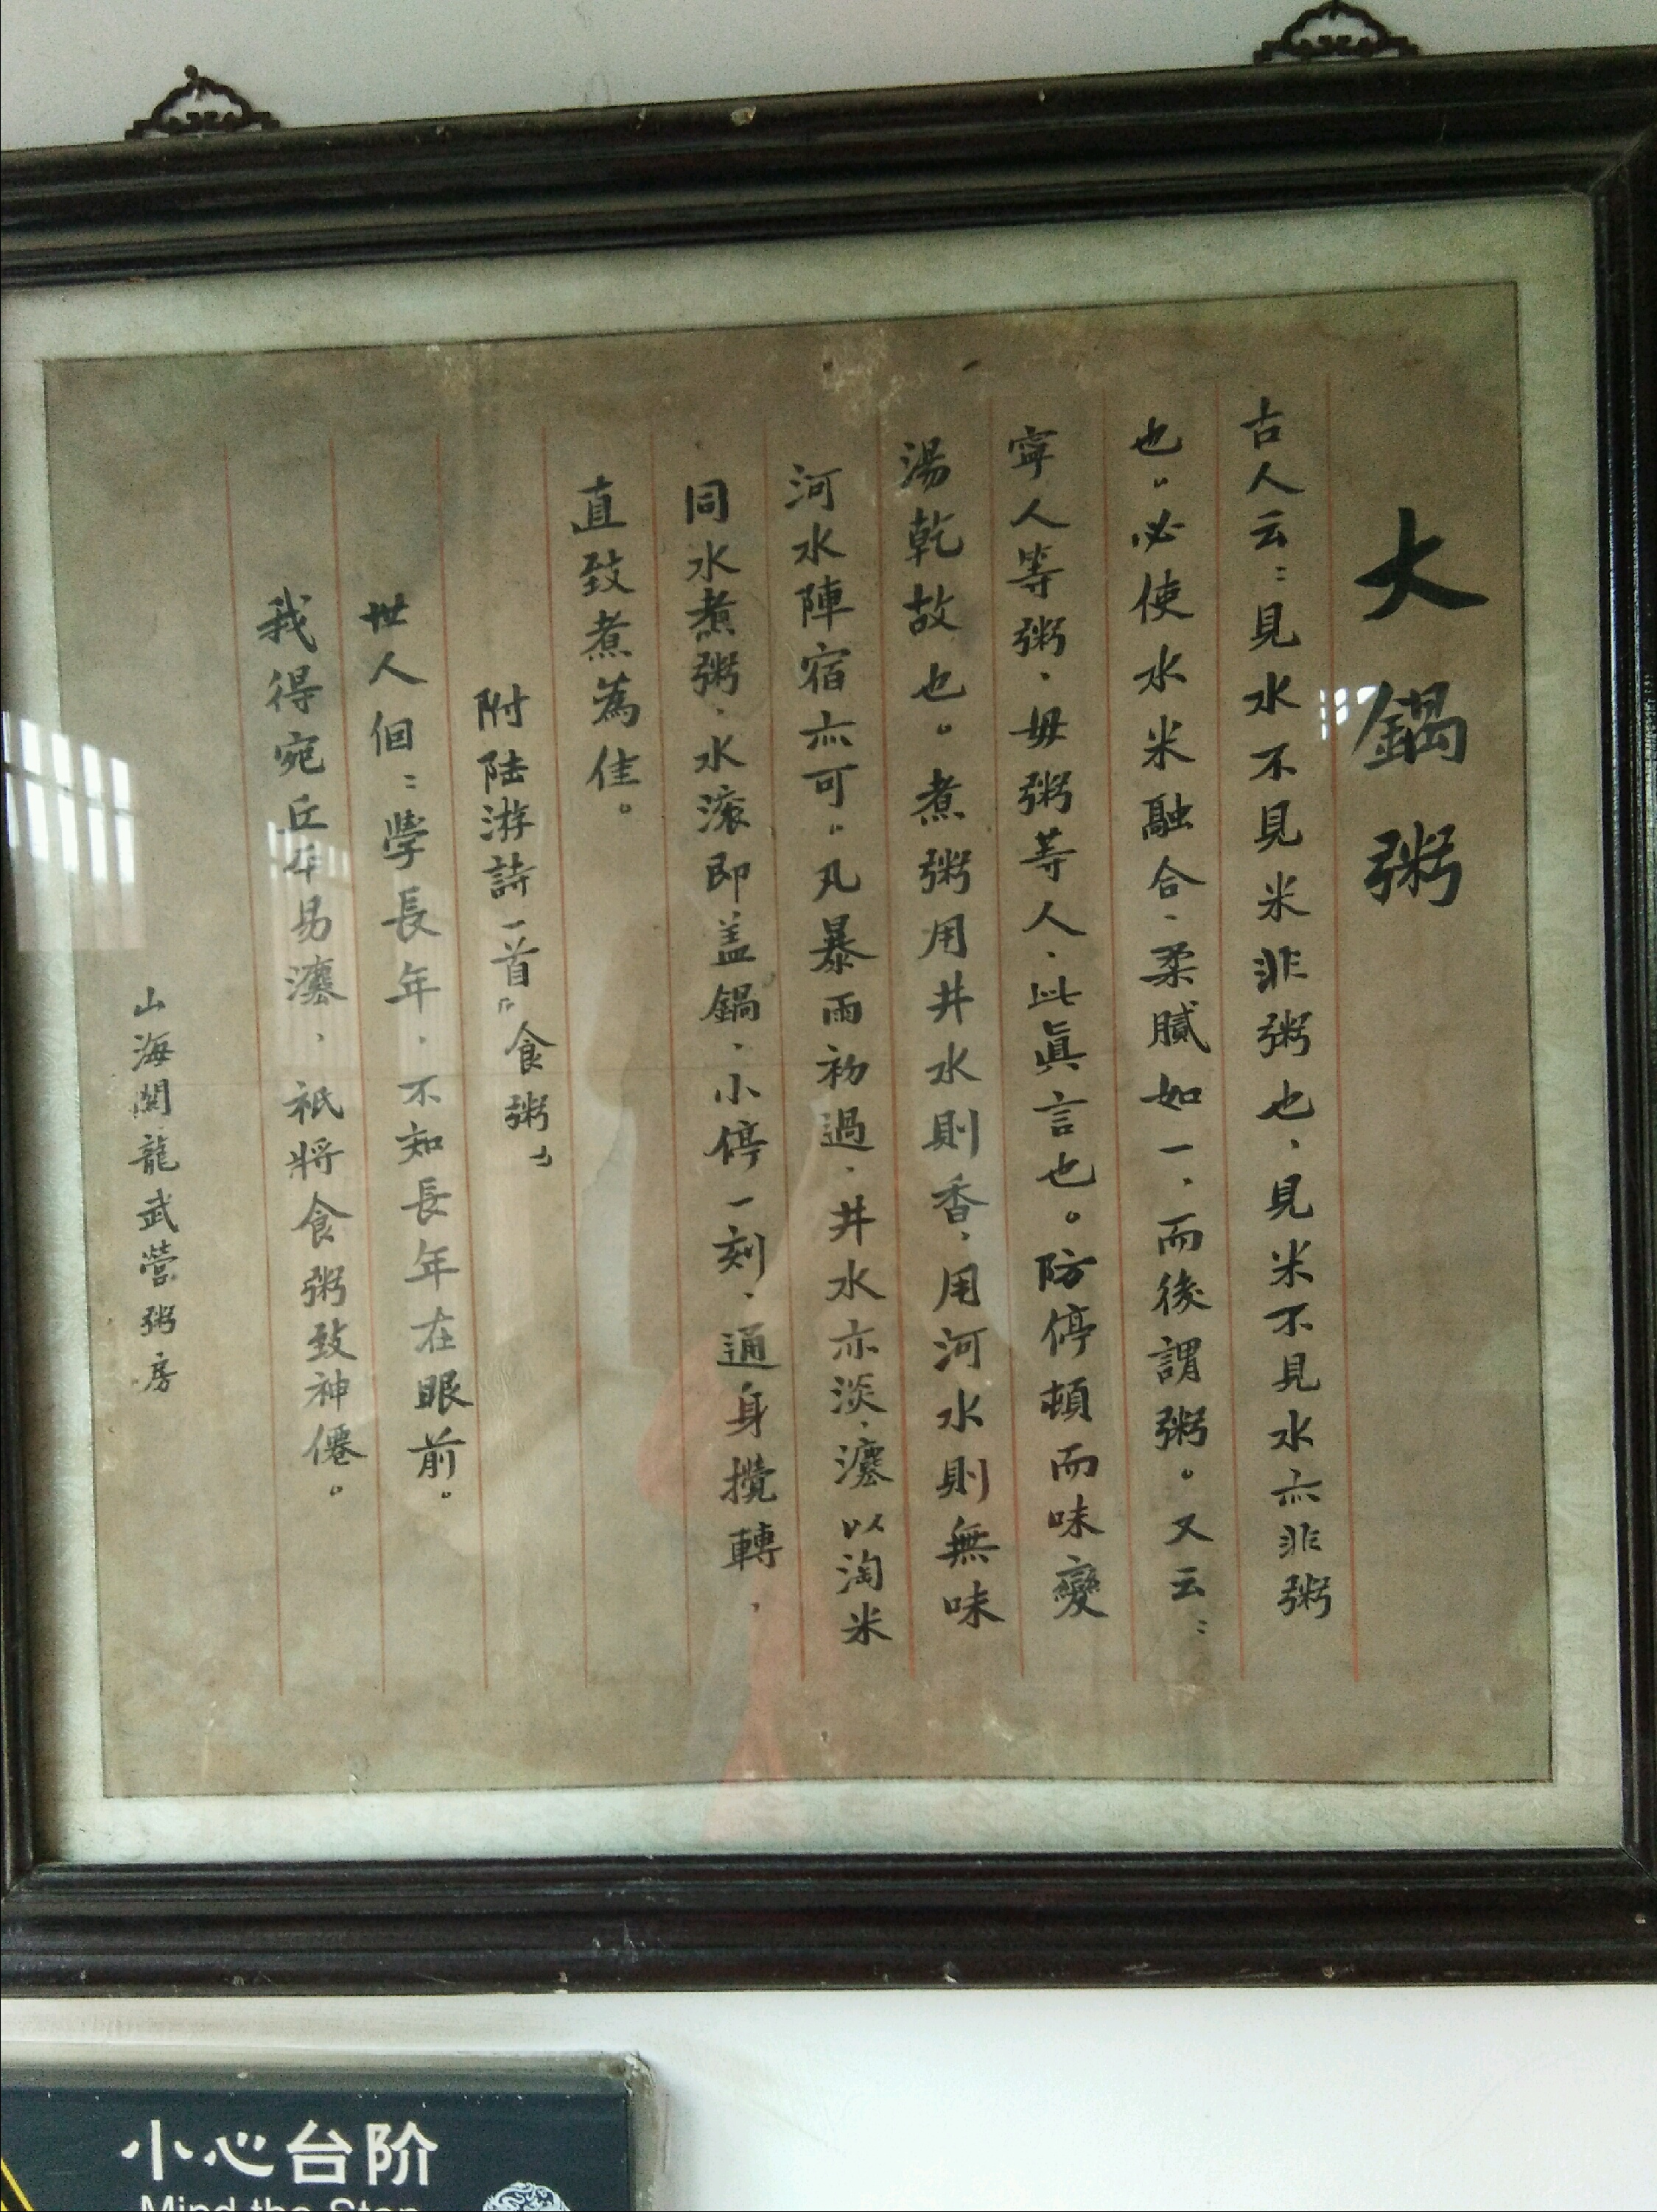 大鍋粥
古人云：見水不見米非粥也、見米不見水亦非粥
也。必使水米融合、柔膩如一、而後謂粥。又云：
寧人等粥、毋粥等人、此眞言也。防停頓而味變
湯乾故也。煮粥用井水則香、用河水則無味
河水陣宿亦可。凡暴雨初過、井水亦淡、以淘米
同水煮粥、水滚即盖鍋、小停一刻、通身攪轉、
直致煮為佳。
附陆游詩一首“食粥”
世人個：學長年、不知長年在眼前。
我得宛丘平易灋、祇將食粥致神僊。
山海関龍武营粥房
小心台阶
Mind the Step